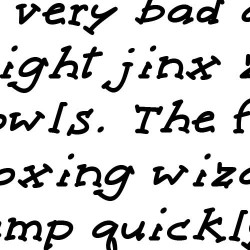 very bad
ight jinx
owls. The f
oxing wiza
ump quickly